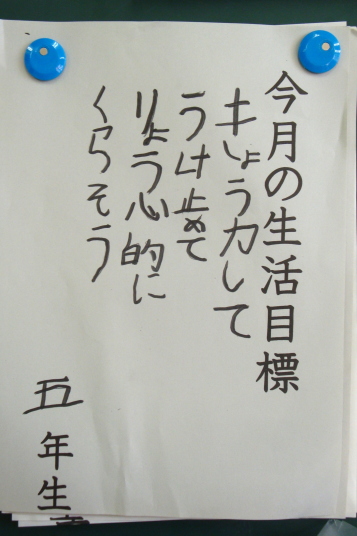 今月の生活目標
きょう力して
うけ止めて
りょう心的に
くらそう
五年生